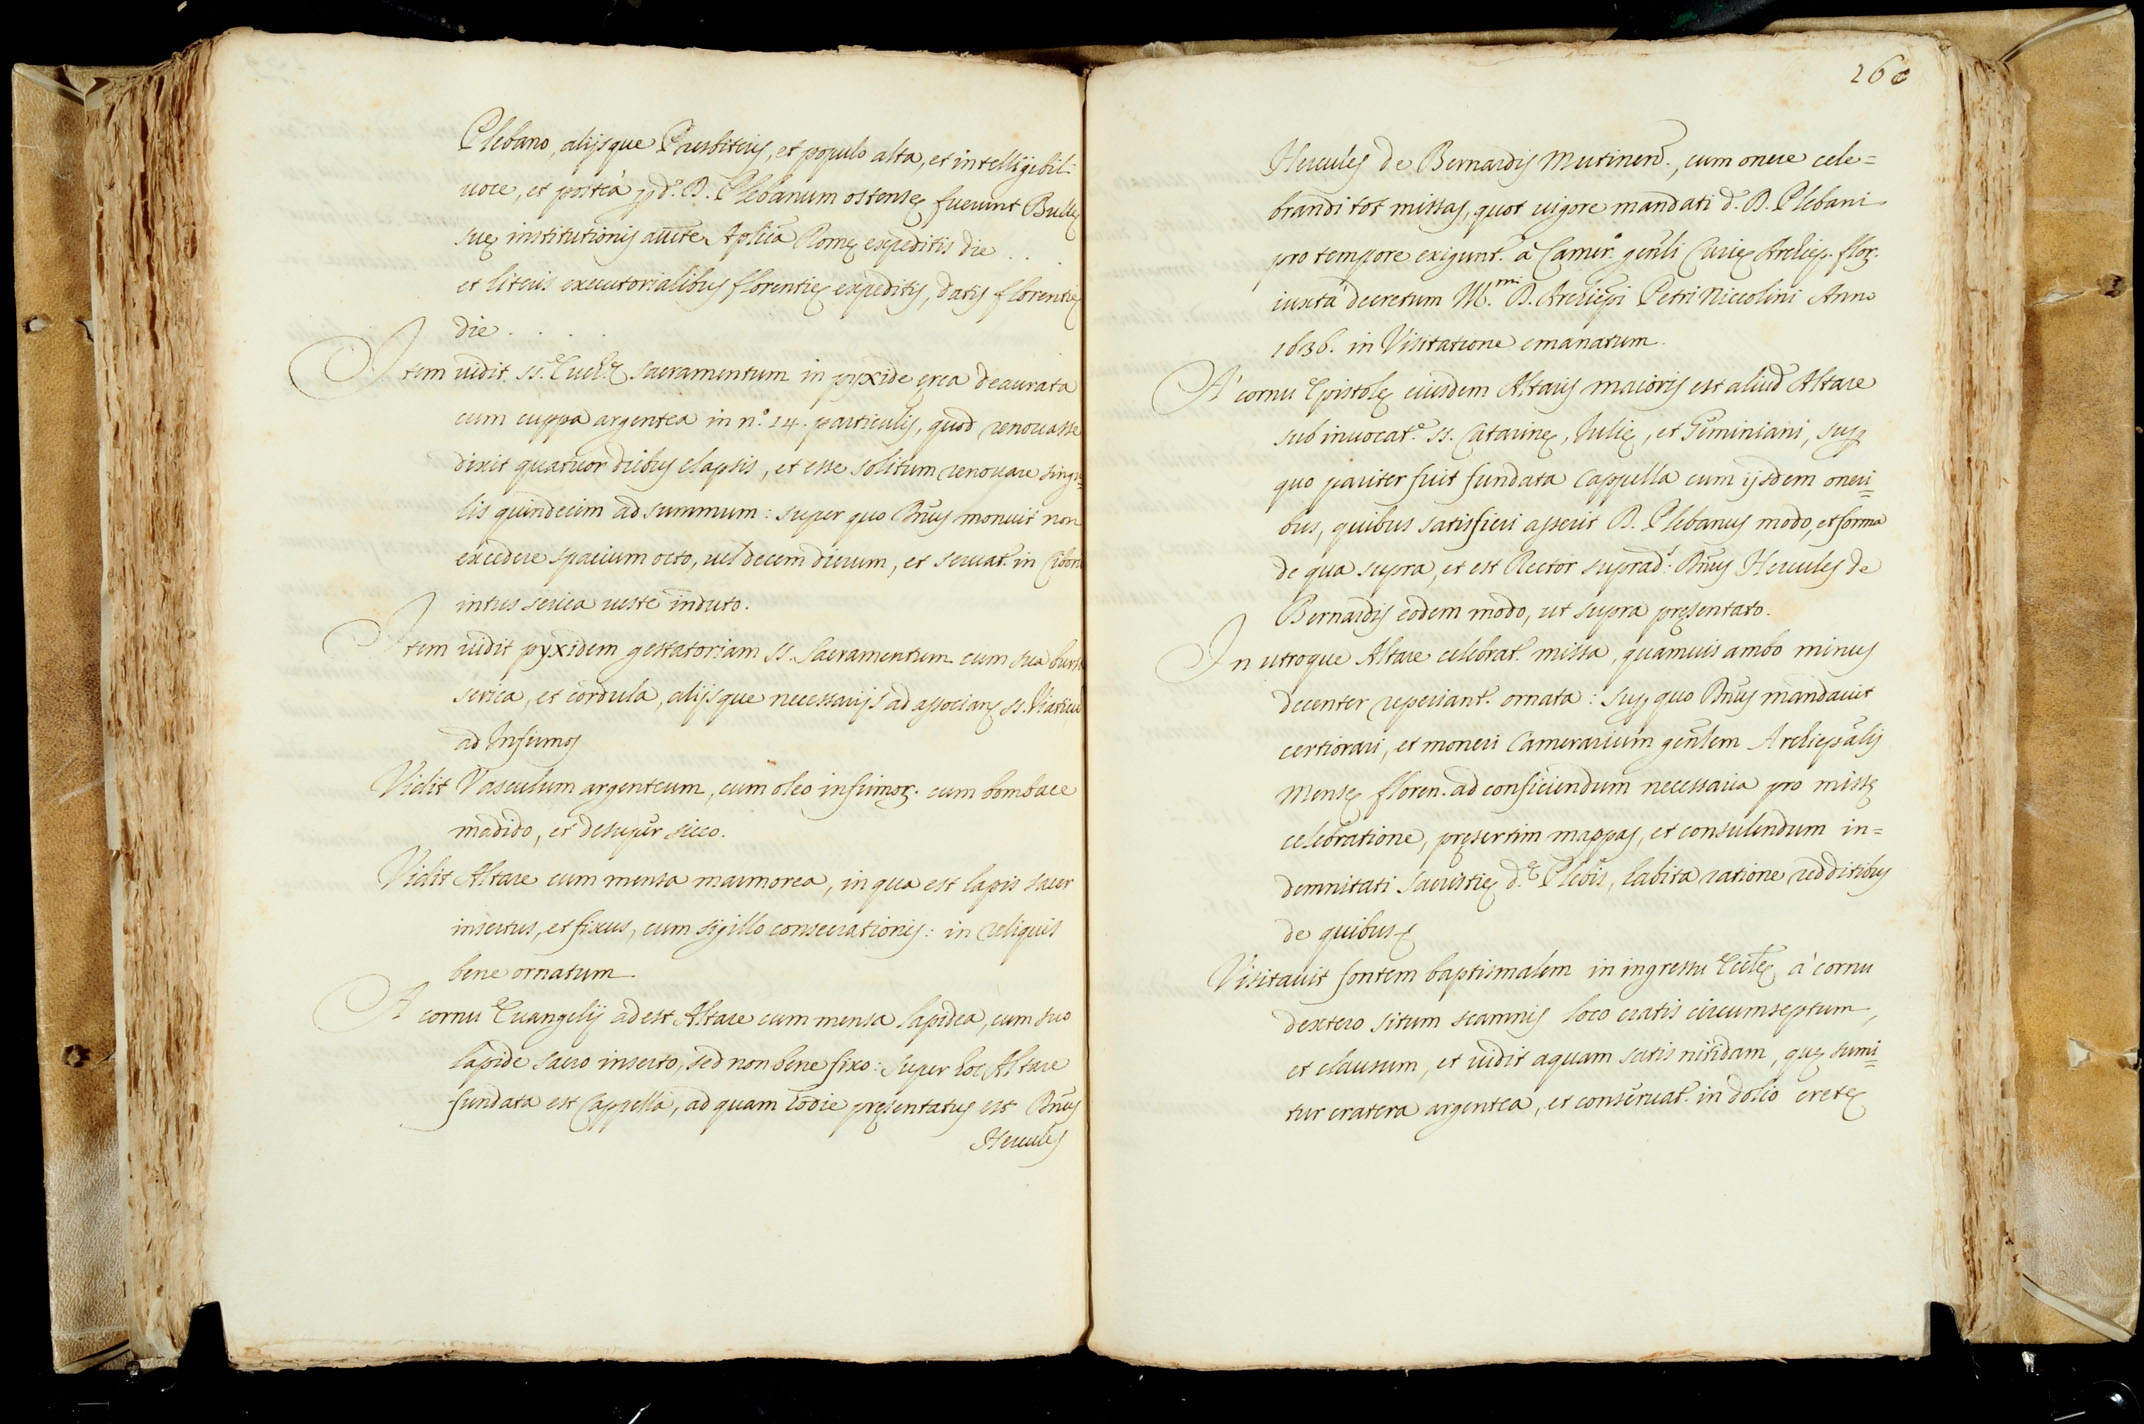 Plebano, alijsque Presbiteris, et populo alta, et intelligibili
uoce, et posteà p d. D. Plebanum ostensę fuerunt Bullę
suę institutionis auctte Aplica Romę expeditis die . . .
et literis executorialibus florentię expeditis, datis florentię
die . . . .
Item uidit ss. Euch.ę sacramentum in pyxide ęrea deaurata
cum cuppa argentea in n.° 14. particulis, quod renouasse
dixit quatuor diebus elapsis, et esse solitum renouare singu=
lis quindecim ad summum: super quo Dñus monuit non
excedere spacium octo, uel decem dierum, et seruat. in Cibori
intus serica ueste induto.
Item uidit pyxidem gestatoriam ss. Sacramentum cum sua bursa
serica, et cordula, alijsque necessarijs ad associanḍ ss. Viaticū
ad Infirmos
Vidit Vasculum argenteum, cum oleo infirmoꝝ. cum bombace
madido, et desuper sicco.
Vidit Altare cum mensa marmorea, in qua est lapis sacer
insertus, et fixus, cum sigillo consecrationis: in reliquis
bene ornatum
A cornu Euangelij adest Altare cum mensa lapidea, cum suo
lapide sacro inserto, sed non bene fixo: super hoc Altare
fundata est Cappella, ad quam hodie pręsentatus est Dñus
Hercules
260
Hercules de Bernardis Mutinen., cum onere cele=
brandi tot missas, quot uigore mandati d. D. Plebani
pro tempore exigunt. à Camer.° gen̄li Curię Archiep. flor.
iuxta decretum Ill.mi D. Archiepi Petri Niccolini Anno
1636. in Visitatione emanatum.
A' cornu Epistolę eiusdem Altaris maioris est aliud Altare
sub inuocat.e ss. Catarinę, Iulię, et Geminiani, sup
quo pariter fuit fundata Cappella cum ijsdem oneri=
bus, quibus satisfieri asserit D. Plebanus modo, et forma
de qua supra, et est Rector suprad.s Dñus Hercules de
Bernardis eodem modo, ut supra pręsentato.
In utroque Altare celebrat. missa, quamuis ambo minus
decenter reperiant. ornata: sup quo Dñus mandauit
certiorari, et moneri Camerarium gen̄lem Archiepālis
Mensę floren. ad conficiendum necessaria pro missę
celebratione, pręsertim mappas, et consulendum in=
demnitati sacristię d.ę Plebis, habita ratione redditibus
de quibus
Visitauit fontem baptismalem in ingressu Eccl̄ę à cornu
dextero situm scamnis loco cratis circumseptum,
et clausum, et uidit aquam satis nitidam, quę sumi=
tur cratera argentea, et conseruat. in dolio cretę